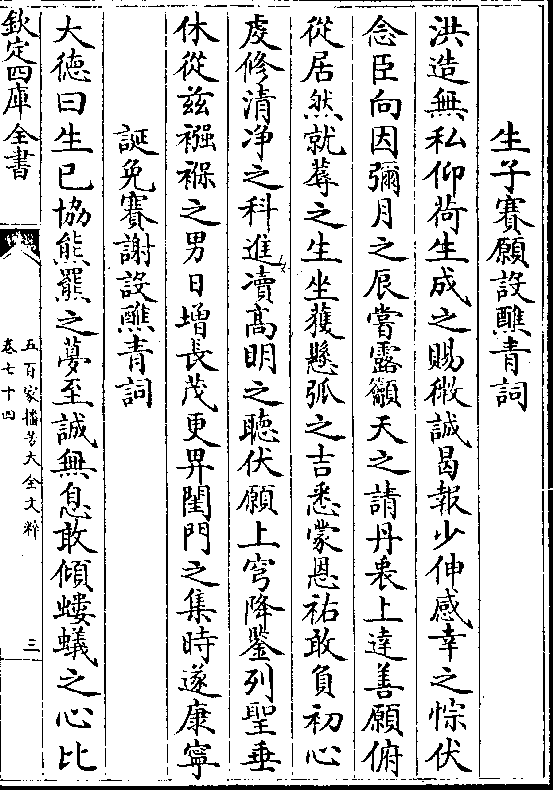 生子賽願設醮青詞
洪造無私仰荷生成之賜微誠曷報少伸感幸之悰伏
念臣向因彌月之辰嘗露籲天之請丹衷上達善願俯
從居然就蓐之生坐獲懸弧之吉悉蒙恩祐敢負初心
虔修清淨之科進瀆高明之聽伏願上穹降鑒列聖垂
休從兹襁褓之男日增長茂更畀閨門之集時遂康寧
誕免賽謝設醮青詞
大德曰生已協熊羆之夢至誠無息敢傾螻蟻之心比
欽定四庫全書
五百家播芳大全文粹
卷七十四
三